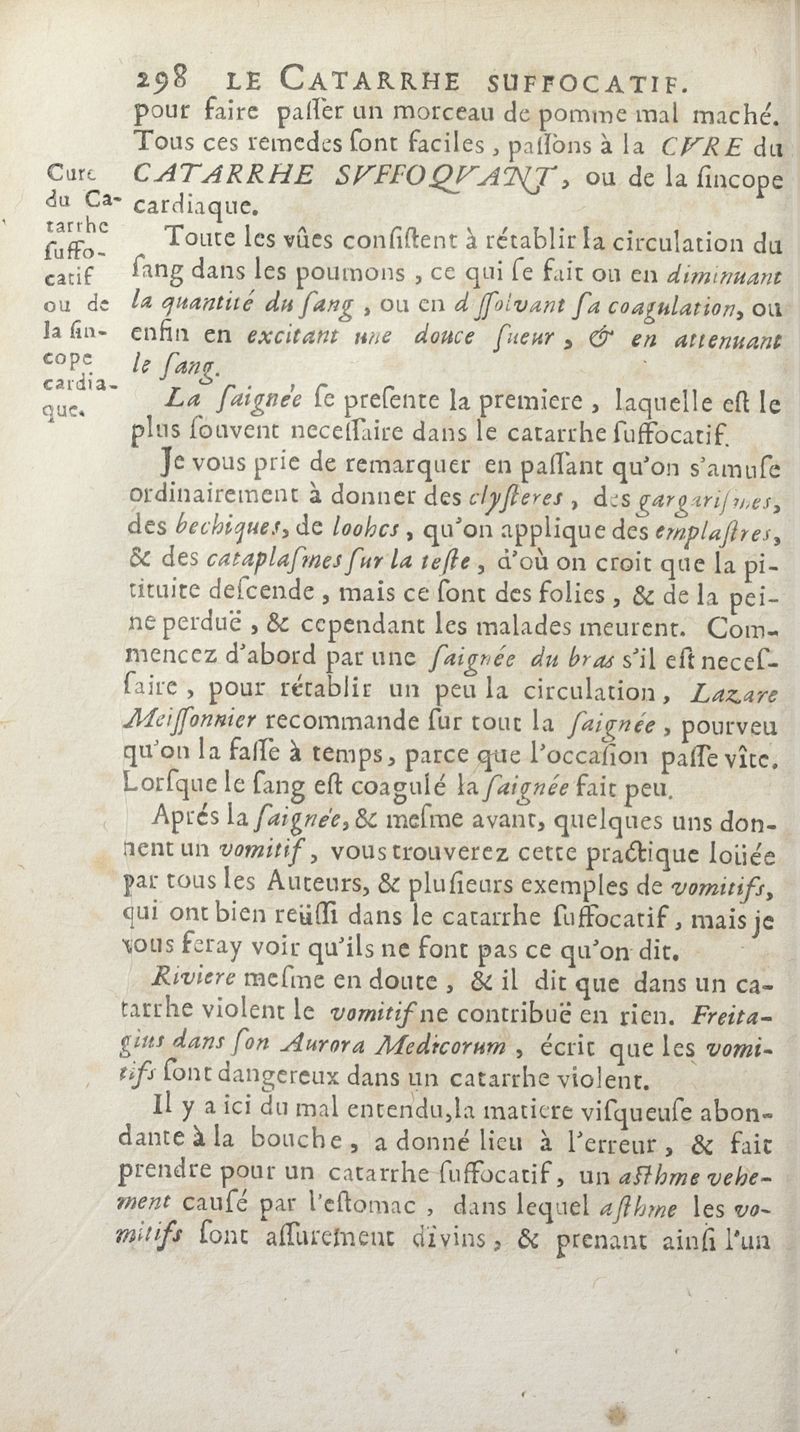 298 LE CATARRHE SUFFOCATIF.
pour faire paſſer un morceau de pomme mal maché.
Tous ces remedes ſont faciles, paſſons à la CVRE du
CATARRHE SVFFOQVANT, ou de la ſincope
cardiaque.
Cure
du Ca-
tarrhe
ſuffo-
catif
ou de
la ſin-
cope
cardia-
que.
Toute les vûes conſiſtent à rétablir la circulation du
ſang dans les poumons, ce qui ſe fait ou en diminuant
la quantité du ſang, ou en d ſſolvant ſa coagulation, ou
enfin en excitant une douce ſueur, & en attenuant
le ſang.
La ſaignée ſe preſente la premiere, laquelle eſt le
plus ſouvent neceſſaire dans le catarrhe ſuffocatif.
Je vous prie de remarquer en paſſant qu'on s'amuſe
ordinairement à donner des clyſteres, des gargariſmes,
des bechiques, de loohcs, qu'on applique des emplaſtres,
& des cataplaſmes ſur la teſte, d'où on croit que la pi-
tituite deſcende, mais ce ſont des folies, & de la pei-
ne perduë, & cependant les malades meurent. Com-
mencez d'abord par une ſaignée du bras s'il eſt neceſ-
ſaire, pour rétablir un peu la circulation, Lazare
Meiſſonnier recommande ſur tout la ſaignée, pourveu
qu'on la faſſe à temps, parce que l'occaſion paſſe vîte.
Lorſque le ſang eſt coagulé la ſaignée fait peu.
Aprés la ſaignée, & meſme avant, quelques uns don-
nent un vomitif, vous trouverez cette practique loüée
par tous les Auteurs, & pluſieurs exemples de vomitifs,
qui ont bien reüſſi dans le catarrhe ſuffocatif, mais je
vous feray voir qu'ils ne font pas ce qu'on dit.
Riviere meſme en doute, & il dit que dans un ca-
tarrhe violent le vomitif ne contribuë en rien. Freita-
gius dans ſon Aurora Medicorum, écrit que les vomi-
tifs ſont dangereux dans un catarrhe violent.
Il y a ici du mal entendu, la matiere viſqueuſe abon-
dante à la bouche, a donné lieu à l'erreur, & fait
prendre pour un catarrhe ſuffocatif, un aſthme vehe-
ment cauſé par l'eſtomac, dans lequel aſthme les vo-
mitifs ſont aſſurement divins, & prenant ainſi l'un